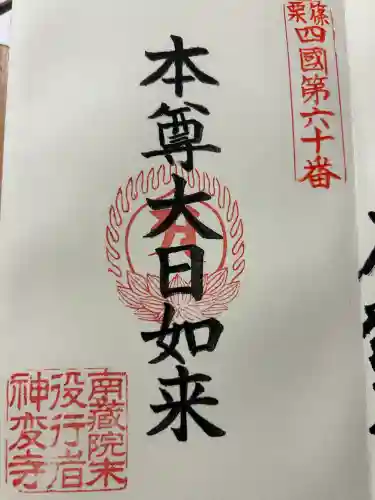 篠栗
四國第六十番
本尊大日如来
南蔵院末
役行者
神変寺